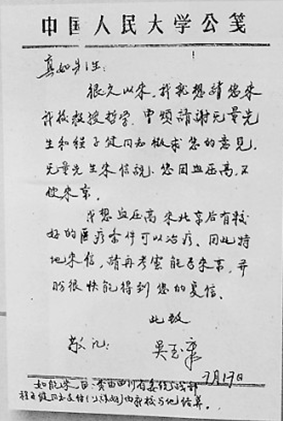 中国人民大学公笺
真如先生：
很久以来，我就想請您来
我校教授哲学，中頃請謝无量先
生和程子健同志徵求您的意見，
无量先生来信說，您因血压高，不
便来京。
我想血压高来北京后有較
好的医疗条件可以治疗。因此特
地来信，請再考慮能否来京，并
盼很快能得到您的复信。
此致
敬礼
吴玉章
7月17日
如能来京，
程子健同志